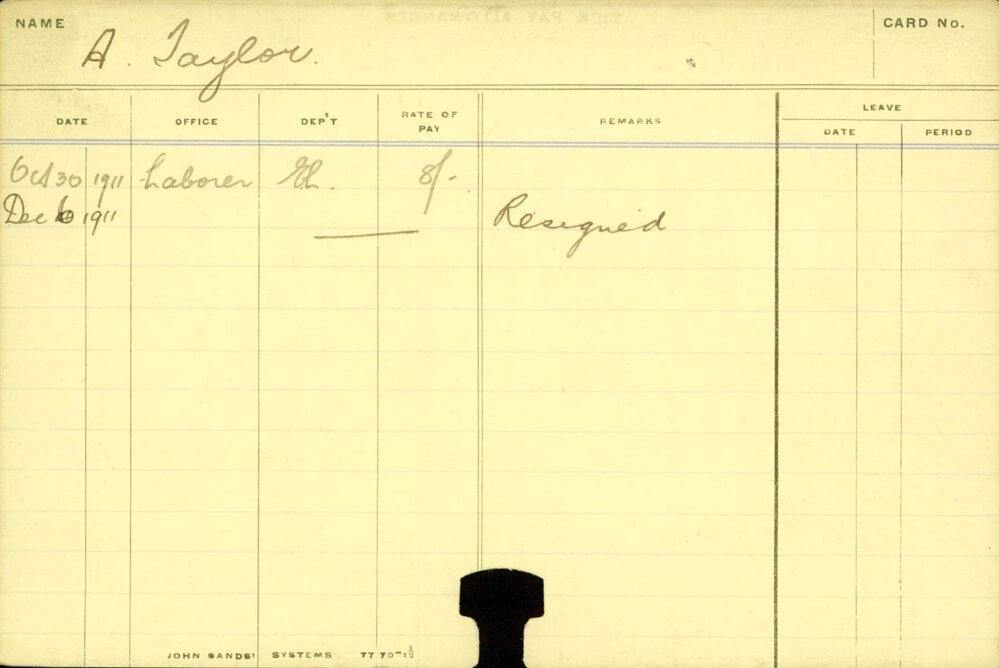 NAME
CARD No.
A. Taylor.
DATE OFFICE DEP'T RATE OF PAY REMARKS LEAVE
DATE PERIOD
Oct 30 1911 Laborer 8/-
Dec 1911 Resigned
JOHN SANDS' SYSTEMS 77 70-1½